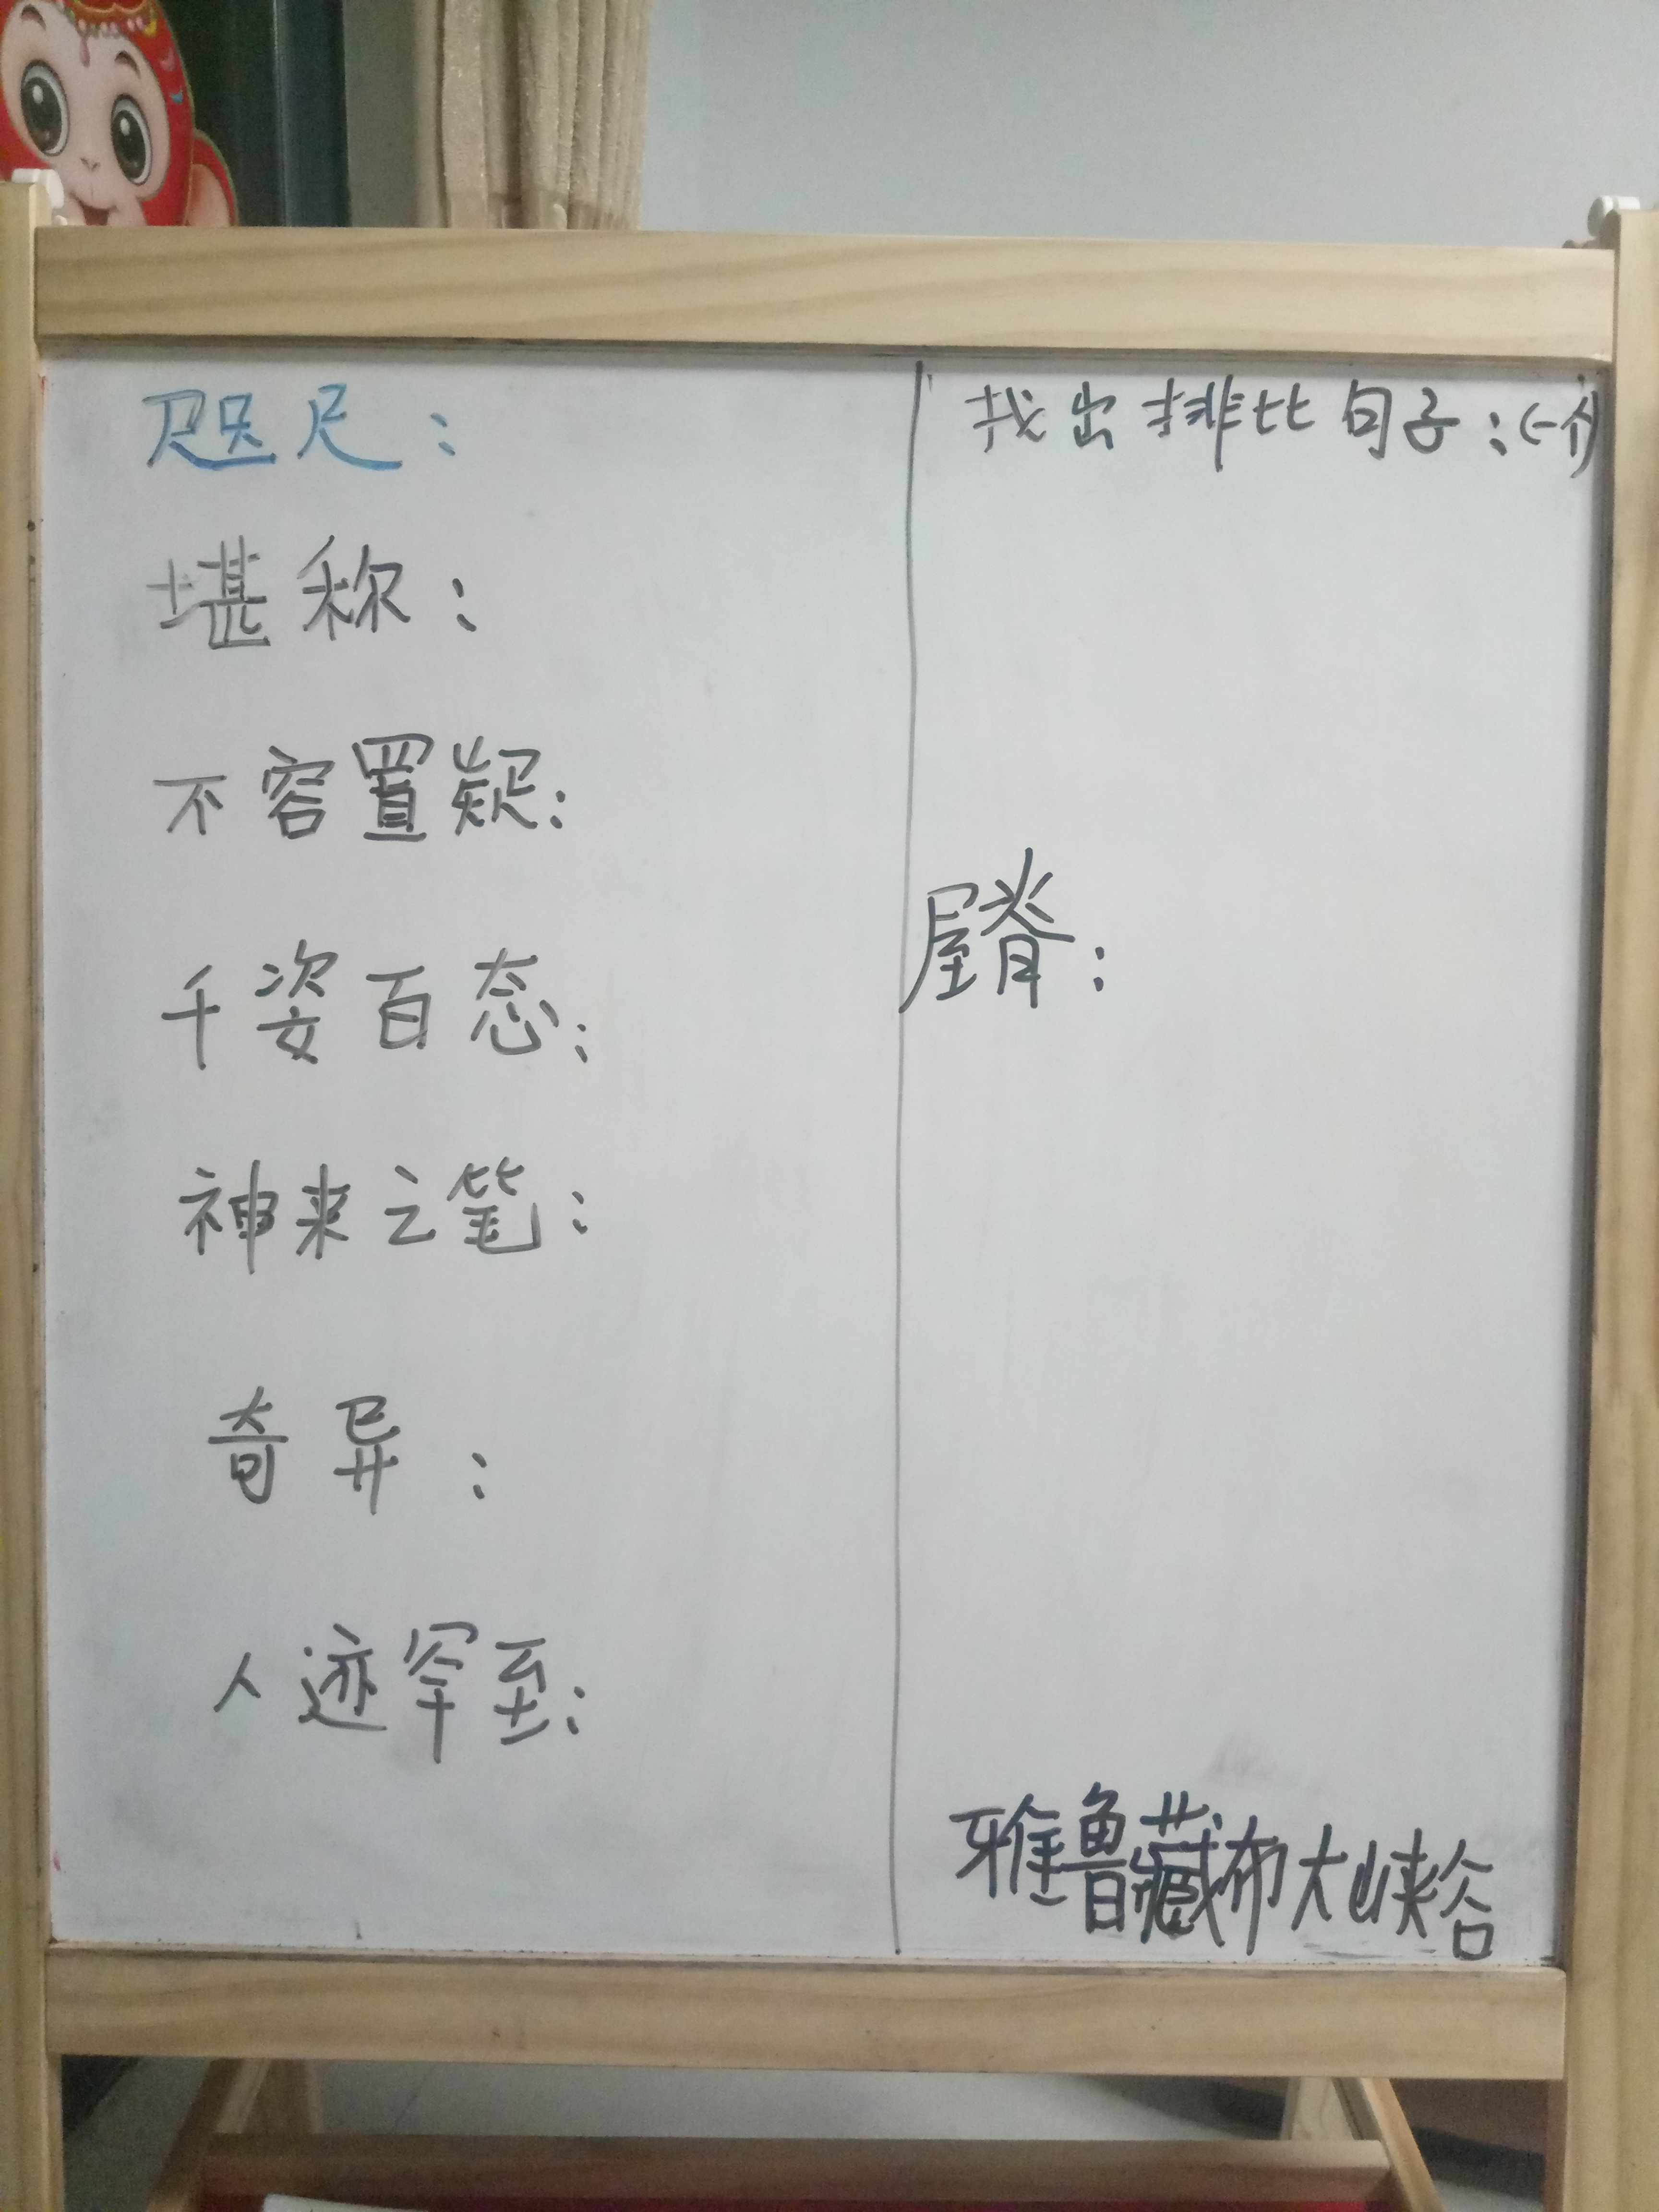 咫尺：
堪称：
不容置疑：
千姿百态：
神来之笔：
奇异：
人迹罕至：
找出排比句子：(一个)
屋脊：
雅鲁藏布大峡谷